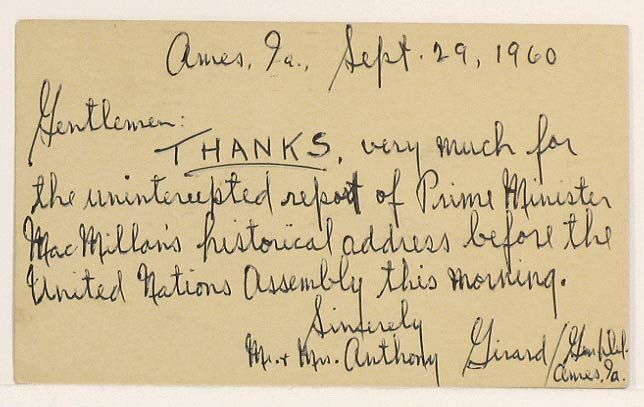 Ames, Ia., Sept. 29, 1960
Gentlemen:
THANKS, very much for
the uninterrupted report of Prime Minister
MacMillan's historical address before the
United Nations Assembly this morning.
Sincerely
Mr. + Mrs. Anthony Girard /
Ames, Ia.